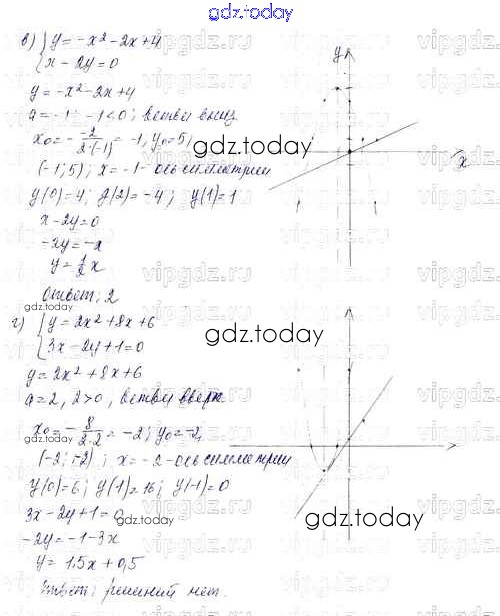 gdz.today
в) { y = -x² - 2x + 4
x - 2y = 0
y = -x² - 2x + 4
a = -1 -1 < 0; ветви вниз
x₀ = - -2/2·(-1) = -1, y₀ = 5,
(-1; 5); x = -1 - ось симметрии
y(0) = 4; y(2) = -4; y(1) = 1
x - 2y = 0
-2y = -x
y = 1/2 x
Ответ: 2
г) { y = 2x² + 8x + 6
3x - 2y + 1 = 0
y = 2x² + 8x + 6
a = 2, 2 > 0, ветви вверх
x₀ = - 8/2·2 = -2; y₀ = -2,
(-2; -2); x = -2 - ось симметрии
y(0) = 6; y(1) = 16; y(-1) = 0
3x - 2y + 1 = 0
-2y = -1 - 3x
y = 1,5x + 0,5
Ответ: решений нет.
y
x
gdz.today
gdz.today
gdz.today
gdz.today
gdz.today
vipgdz.ru